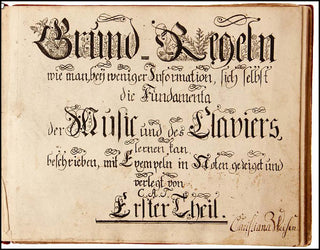 Grund-Regeln
wie man, bey weniger Information, sich selbst
die Fundamenta
der Music und des Claviers,
lernen kan
beschrieben, mit Exempeln in Noten gezeiget und
verlegt von
C. A. T.
Erster Theil.